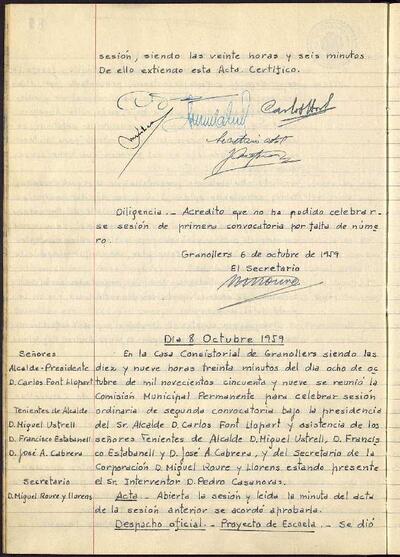 sesión, siendo las veinte horas y seis minutos.
De ello extiendo esta Acta. Certifico.
Diligencia.- Acredito que no ha podido celebrar-
se sesión de primera convocatoria por falta de núme
ro.
Granollers 6 de octubre de 1959
El Secretario
Día 8 Octubre 1959
Señores
Alcalde-Presidente
D. Carlos Font Llopart
Tenientes de Alcalde
D. Miguel Ustrell
D. Francisco Estabanell
D. José A. Cabrera
Secretario
D. Miguel Roure y Llorens
En la Casa Consistorial de Granollers siendo las
diez y nueve horas treinta minutos del día ocho de oc
tubre de mil novecientos cincuenta y nueve se reunió la
Comisión Municipal Permanente para celebrar sesión
ordinaria de segunda convocatoria bajo la presidencia
del Sr. Alcalde D. Carlos Font Llopart y asistencia de los
señores Tenientes de Alcalde D. Miguel Ustrell, D. Francis
co Estabanell y D. José A. Cabrera, y del Secretario de la
Corporación D. Miguel Roure y Llorens estando presente
el Sr. Interventor D. Pedro Casanovas.
Acta.- Abierta la sesión y leida la minuta del acta
de la sesión anterior se acordó aprobarla.
Despacho oficial.- Proyecto de Escuela.- Se dió